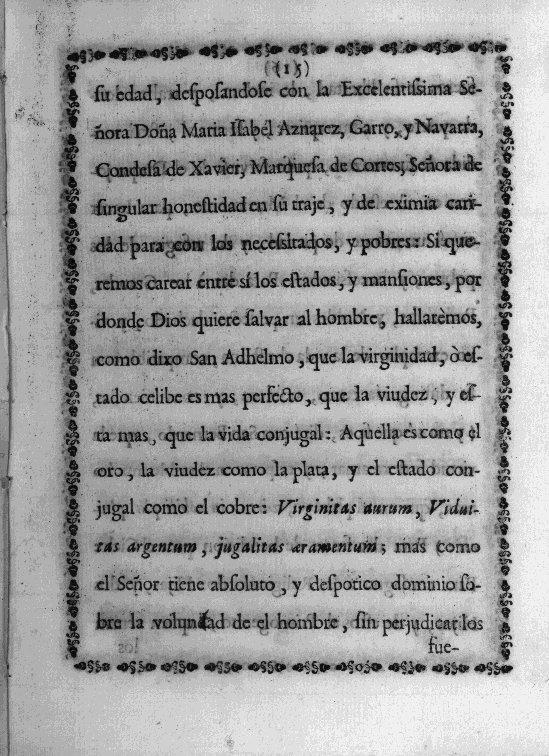 (15)
ſu edad, deſpoſandoſe con la Excelentiſsima Se-
ñora Doña Maria Iſabèl Aznarez, Garro, y Navarra,
Condeſa de Xavier, Marqueſa de Cortes, Señora de
ſingular honeſtidad en ſu traje, y de eximia cari-
dad para con los neceſsitados, y pobres: Si que-
remos carear entre sí los eſtados, y manſiones, por
donde Dios quiere ſalvar al hombre, hallarèmos,
como dixo San Adhelmo, que la virginidad, ò eſ-
tado celibe es mas perfecto, que la viudez, y eſ-
ta mas, que la vida conjugal: Aquella es como el
oro, la viudez como la plata, y el eſtado con-
jugal como el cobre: Virginitas aurum, Vidui-
tas argentum, jugalitas æramentum; mas como
el Señor tiene abſoluto, y deſpotico dominio ſo-
bre la voluntad de el hombre, ſin perjudicar los
fue-